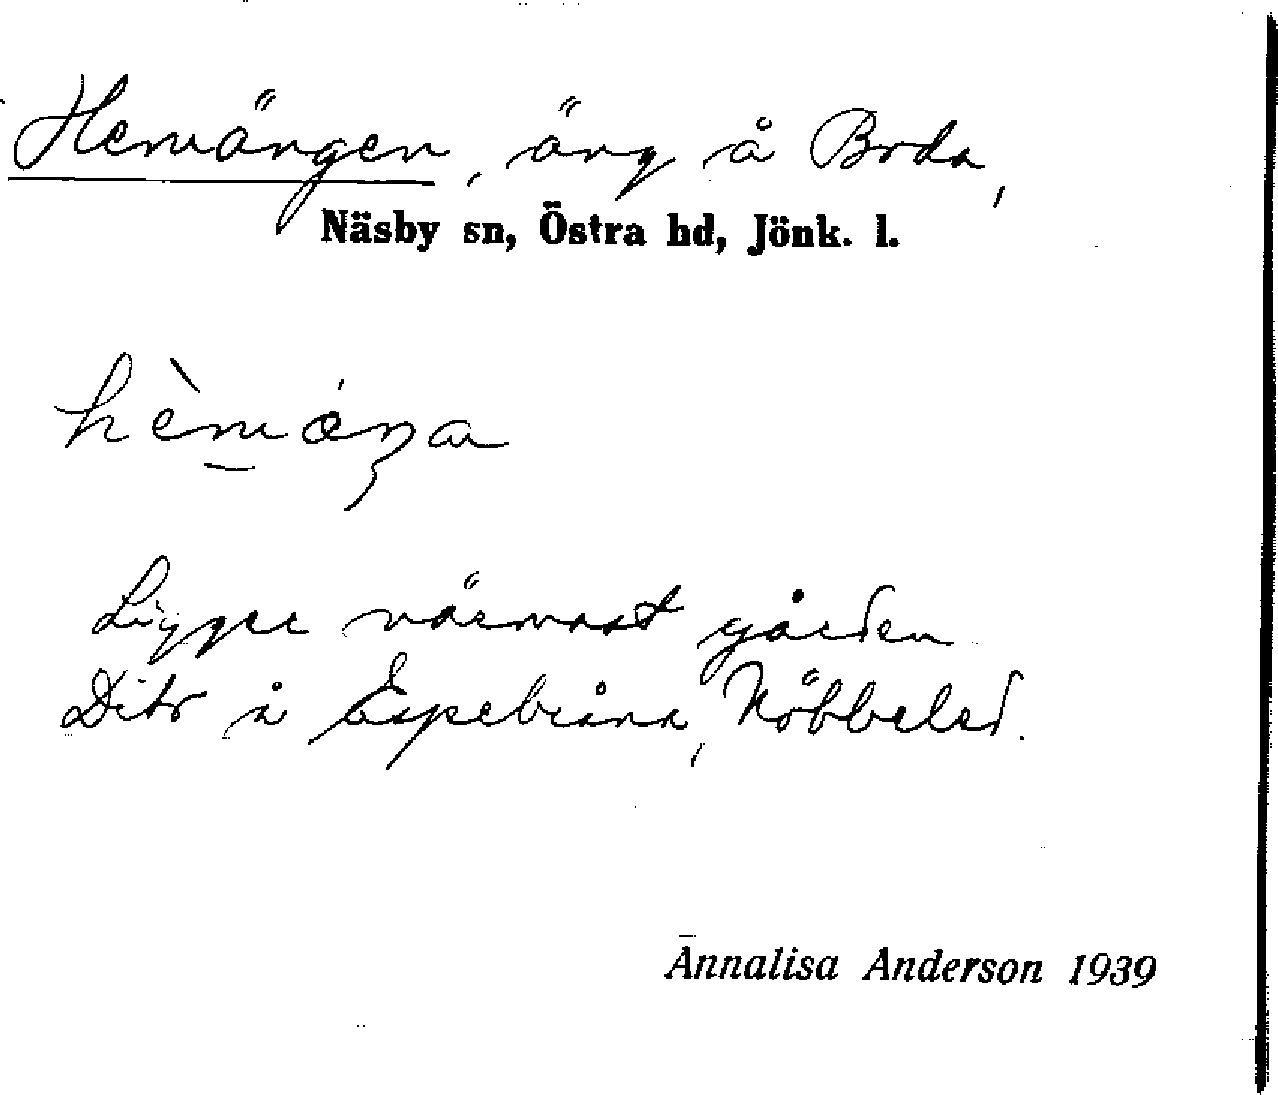 Hemängen, äng å Boda,
Näsby sn, Östra hd, Jönk. l.
Ligger närmast gården
Dito å Espebråna, Nöbbeled.
Annalisa Anderson 1939